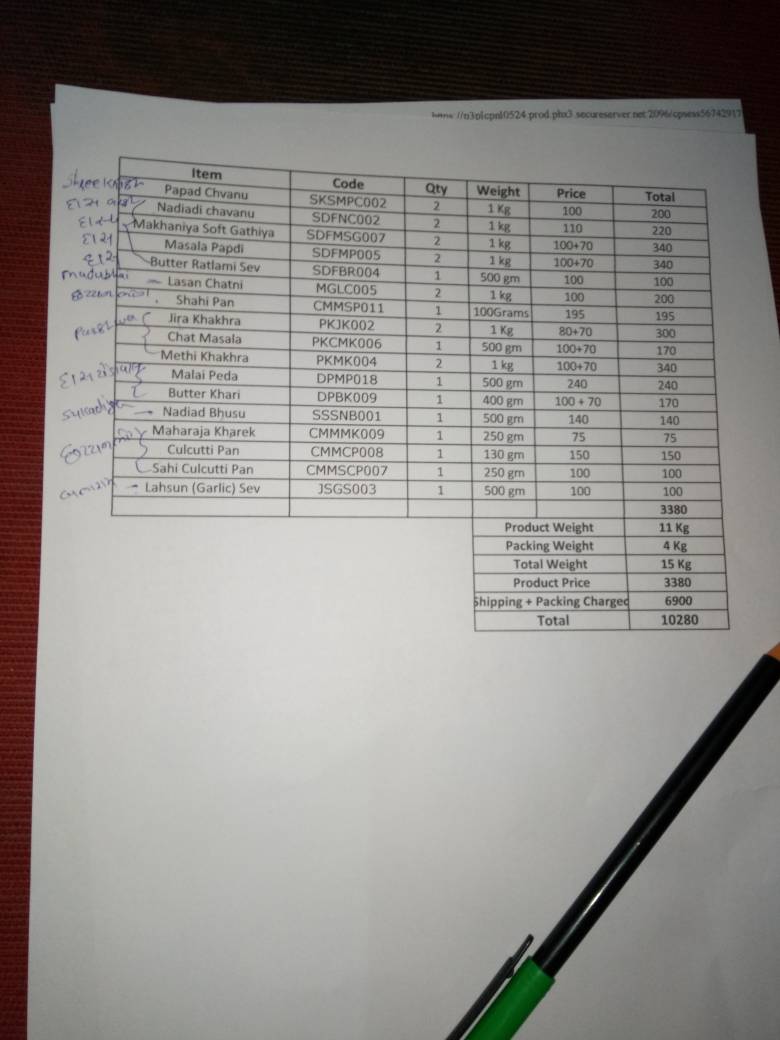 https://n3plcpnl0524.prod.phx3.secureserver.net:2096/cpsess56742917
Item Code Qty Weight Price Total
Papad Chvanu SKSMPC002 2 1 Kg 100 200
Nadiadi chavanu SDFNC002 2 1 kg 110 220
Makhaniya Soft Gathiya SDFMSG007 2 1 kg 100+70 340
Masala Papdi SDFMP005 2 1 kg 100+70 340
Butter Ratlami Sev SDFBR004 1 500 gm 100 100
Lasan Chatni MGLC005 2 1 kg 100 200
Shahi Pan CMMSP011 1 100Grams 195 195
Jira Khakhra PKJK002 2 1 Kg 80+70 300
Chat Masala PKCMK006 1 500 gm 100+70 170
Methi Khakhra PKMK004 2 1 kg 100+70 340
Malai Peda DPMP018 1 500 gm 240 240
Butter Khari DPBK009 1 400 gm 100 + 70 170
Nadiad Bhusu SSSNB001 1 500 gm 140 140
Maharaja Kharek CMMMK009 1 250 gm 75 75
Culcutti Pan CMMCP008 1 130 gm 150 150
Sahi Culcutti Pan CMMSCP007 1 250 gm 100 100
Lahsun (Garlic) Sev JSGS003 1 500 gm 100 100
3380
Product Weight 11 Kg
Packing Weight 4 Kg
Total Weight 15 Kg
Product Price 3380
Shipping + Packing Charged 6900
Total 10280